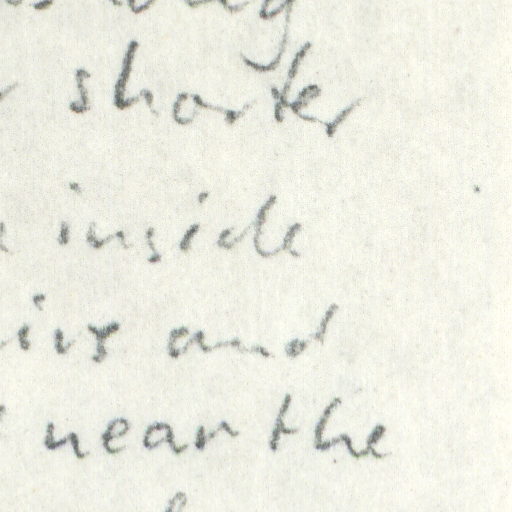 shorter
inside
and
near the